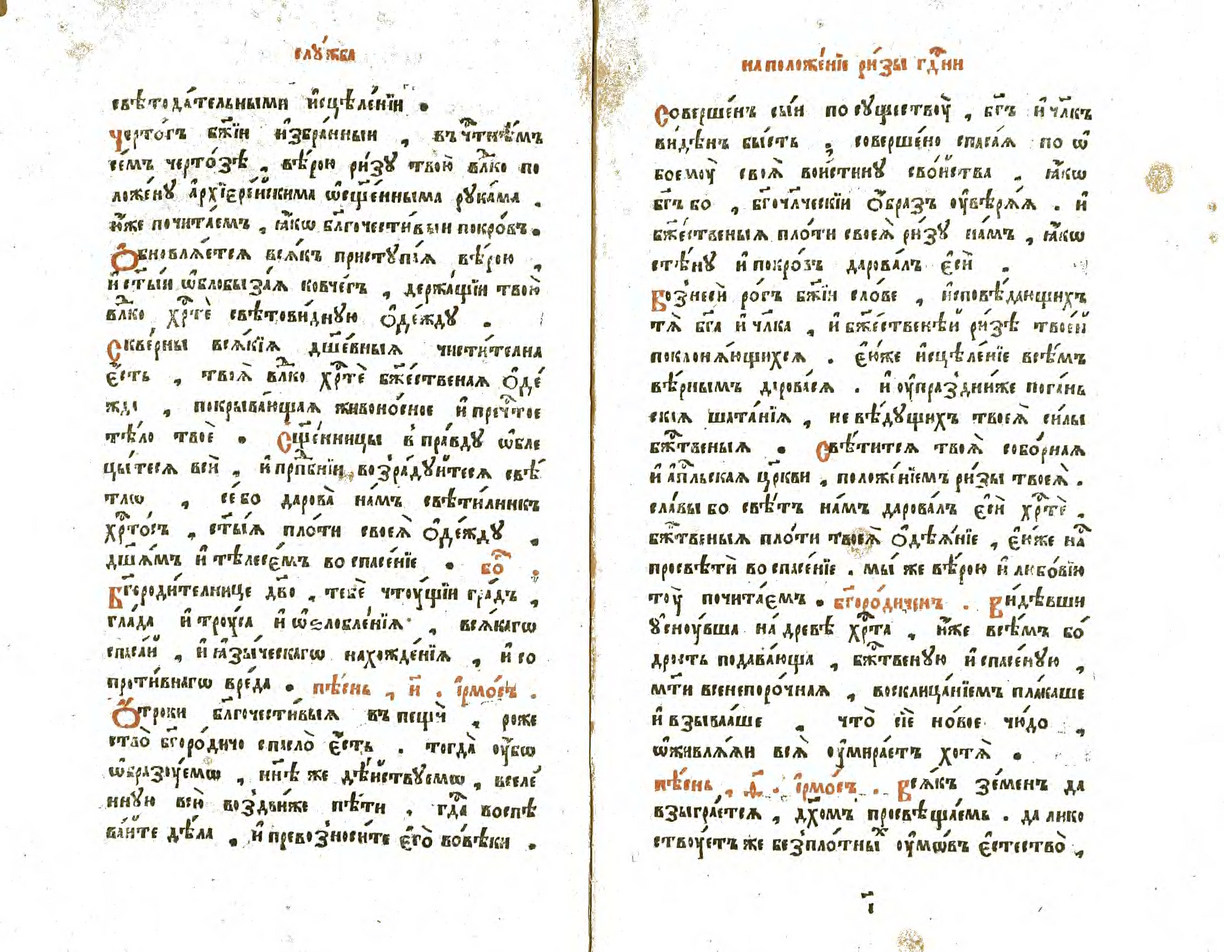 слꙋ́жба
свѣтода́тельными и҆сцѣле́нїи .
черто́гъ бж҃їи и҆збра́нныи , въ чⷭ҇тнѣ́мъ
се́мъ черто́зѣ , вѣ́рою ри́зꙋ твою̀ влⷣко по
ложе́нꙋ а҆рхїере́йскима ѡ҆сщ҃е́нныма рꙋка́ма .
ю҆́же почита́емъ , ꙗ҆́кѡ блг҃очести́выи покро́въ .
Ѻ҆бновлѧ́етсѧ всѧ́къ пристꙋпа́ѧ вѣ́рою ,
и҆ ст҃ы́и ѡ҆блобыза́ѧ ковче́гъ , держа́щїи твою̀
влⷣко хрⷭ҇тѐ свѣтови́днꙋю ѻ҆де́ждꙋ .
Скве́рны всѧ́кїѧ дш҃е́вныѧ чисти́телна
є҆́сть , твоѧ̀ влⷣко хрⷭ҇тѐ бж҃е́ственаѧ ѻ҆де́
жда , покрыва́ющаѧ живоно́сное и҆ пречⷭ҇тое
тѣ́ло твоѐ . Сщ҃е́нницы в пра́вдꙋ ѡ҆бле
цы́тесѧ всѝ , и҆ прпⷣбнїи возра́дꙋитесѧ свѣ́
тлѡ , се́ бо дарова̀ на́мъ свѣти́лникъ
хрⷭ҇то́съ , ст҃ы́ѧ пло́ти своеѧ̀ ѻ҆де́ждꙋ ,
дш҃а́мъ и҆ тѣлесе́мъ во спасе́нїе . бо҆ⷢ .
Бг҃ороди́телнице дв҃о , тебѐ чтоу́щїи гра́дъ ,
гла́да и҆ трꙋ́са и҆ ѡ҆ѕлобле́нїѧ , всѧ́кагѡ
спаса́и , и҆ ꙗ҆зы́ческагѡ нахожде́нїѧ , и҆ со
проти́внагѡ вреда̀ . пѣ́снь , и҃ . і҆рмо́съ .
Ѻ҆́троки блг҃очести́выѧ въ пещѝ , роже
ство̀ бг҃оро́дичо спасло̀ є҆́сть . тогда̀ оу҆́бѡ
ѡ҆бразоу́емѡ , нн҃ѣ же дѣ́йствꙋемѡ , вселе́
ннꙋю всѝ воздви́же пѣ́ти . гдⷭ҇а воспѣ
ва́йте дѣла̀ , и҆ превозноси́те є҆го̀ во вѣ́ки .
на положе́нїе ри́зы гдⷭ҇ни
Соверше́нъ сы́и по сꙋществоу̀ , бг҃ъ и҆ чл҃къ
ви́дѣнъ бы́сть , соверше́но спаса́ѧ по ѡ҆
боемоу̀ своѧ̀ вои́стинꙋ сво́йства . ꙗ҆́кѡ
бг҃ъ бо , бг҃очл҃ческїи ѻ҆́бразъ оу҆вѣрѧ́ѧ . и҆
бж҃е́ственыѧ пло́ти своеѧ̀ ри́зꙋ на́мъ , ꙗ҆́кѡ
стѣ́нꙋ и҆ покро́въ дарова́лъ є҆сѝ .
Вознесѝ ро́гъ бж҃їи сло́ве , и҆сповѣ́дающихъ
тѧ̀ бг҃а и҆ чл҃ка , и҆ бж҃е́ственѣй ри́зѣ твое́й
поклонѧ́ющихсѧ . є҆ю́же и҆сцѣле́нїе всѣ́мъ
вѣ́рнымъ дарова́сѧ . и҆ оу҆праздни́же пога́нь
скїѧ шата́нїѧ , не вѣ́дꙋщихъ твоеѧ̀ си́лы
бжⷭ҇твеныѧ . Свѣ́титсѧ твоѧ̀ собо́рнаѧ
и҆ а҆пⷭ҇льскаѧ цр҃кви , положе́нїемъ ри́зы твоеѧ̀ .
сла́вы бо свѣ́тъ на́мъ дарова́лъ є҆сѝ хрⷭ҇тѐ .
бжⷭ҇твеныѧ пло́ти твоеѧ̀ ѻ҆дѣѧ́нїе , є҆́иже на́ⷭ
просвѣтѝ во спасе́нїе . мы́ же вѣ́рою и҆ любо́вїю
тоу̀ почита́емъ . бг҃оро́диченъ . Ви́дѣвши
ᲂу҆сноу́вша на дре́вѣ хрⷭ҇та̀ , и҆́же всѣ́мъ бо́
дрость подава́юща , бжⷭ҇твенꙋю и҆ спасе́нꙋю ,
мт҃и всенепоро́чнаѧ , восклица́нїемъ пла́каше
и҆ взыва́аше , что̀ сїѐ но́вое чю́до ,
ѡ҆живлѧ́ѧи всѧ̀ оу҆мира́етъ хотѧ̀ .
пѣ́снь , ѳ҃ . і҆рмо́съ . Всѧ́къ зе́менъ да
взыгра́етсѧ , дх҃омъ просвѣща́емь . да лико
ствоу́етъ же безпло́тныⷯ оу҆мѡ́въ є҆стество̀ ,
і҃